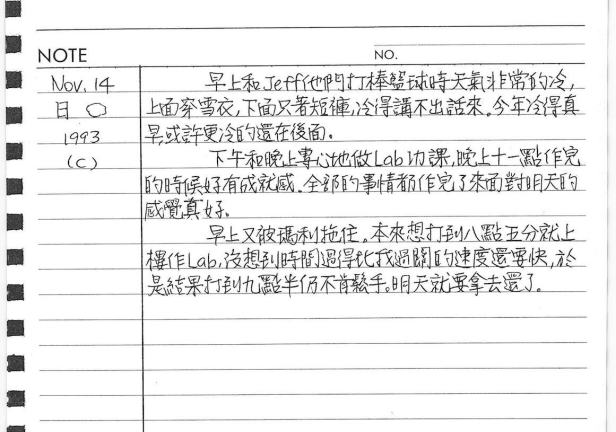 NOTE
NO.
Nov. 14
日 ○
1993
(C)
早上和Jeff他們打棒籃球時天氣非常的冷,
上面穿雪衣,下面只著短褲,冷得講不出話來。今年冷得真
早,或許更冷的還在後面。
下午和晚上專心地做Lab功課,晚上十一點作完
的時候好有成就感。全部的事情都作完了來面對明天的
感覺真好。
早上又被瑪利拖住。本來想打到八點五分就上
樓作Lab,沒想到時間過得比我過關的速度還要快,於
是結果打到九點半仍不肯鬆手。明天就要拿去還了。